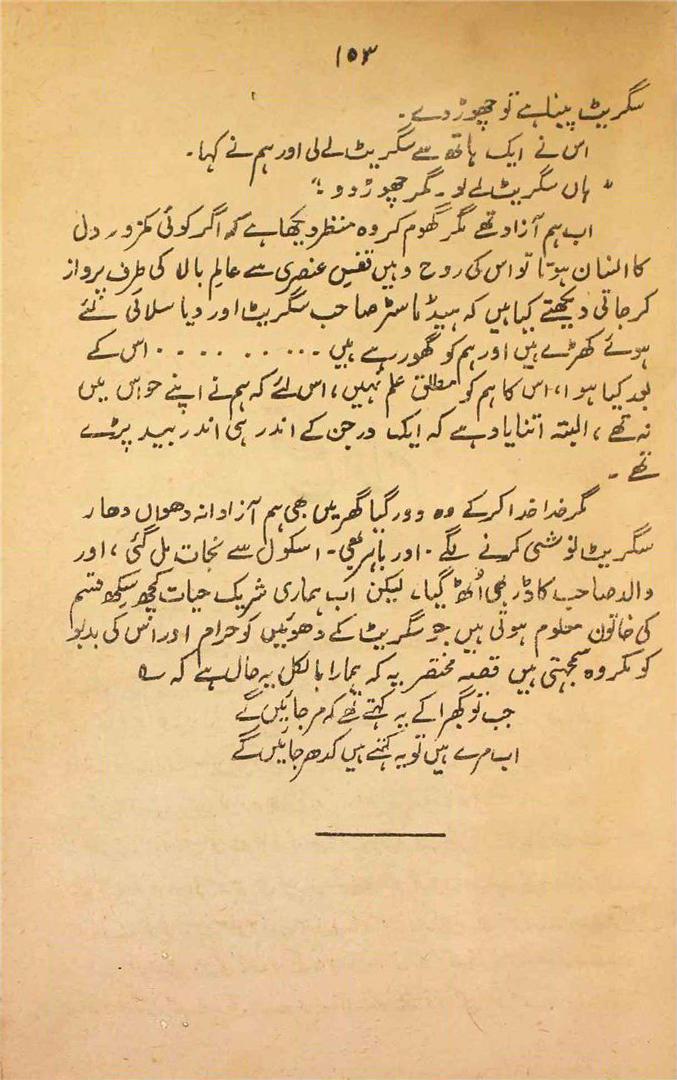 ۱۵۳
سگریٹ پینا ہے تو چھوڑ دے۔
اس نے ایک ہاتھ سے سگریٹ لے لی اور ہم نے کہا۔
"ہاں سگریٹ لے لو۔ مگر چھوڑ دو!"
اب ہم آزاد تھے مگر گھوم کر وہ منظر دیکھا ہے کہ اگر کوئی کمزور دل
کا انسان ہوتا تو اس کی روح وہیں قفسِ عنصری سے عالم بالا کی طرف پرواز
کر جاتی دیکھتے کیا ہیں کہ ہیڈ ماسٹر صاحب سگریٹ اور دیا سلائی لئے
ہوئے کھڑے ہیں اور ہم کو گھور رہے ہیں ۔۔۔۔۔۔۔۔۔ اس کے
بعد کیا ہوا، اس کا ہم کو مطلق علم نہیں، اس لئے کہ ہم نے اپنے حواس میں
نہ تھے، البتہ اتنا یاد ہے کہ ایک درجن کے اندر ہی اندر بید پڑے
تھے۔
مگر خدا خدا کر کے وہ دور گیا گھر میں بھی ہم آزادانہ دھواں دھار
سگریٹ نوشی کرنے لگے۔ اور باہر بھی۔ اسکول سے نجات مل گئی، اور
والد صاحب کا ڈر بھی اُٹھ گیا، لیکن اب ہماری شریک حیات کچھ سکھ قسم
کی خاتون معلوم ہوتی ہیں جو سگریٹ کے دھوئیں کو حرام اور اس کی بدبو
کو مکروہ سمجھتی ہیں قصہ مختصر یہ کہ ہمارا بالکل یہ حال ہے کہ ؎
جب تو گھبرا کے یہ کہتے تھے کہ مر جائیں گے
اب مرے ہیں تو یہ کہتے ہیں کدھر جائیں گے